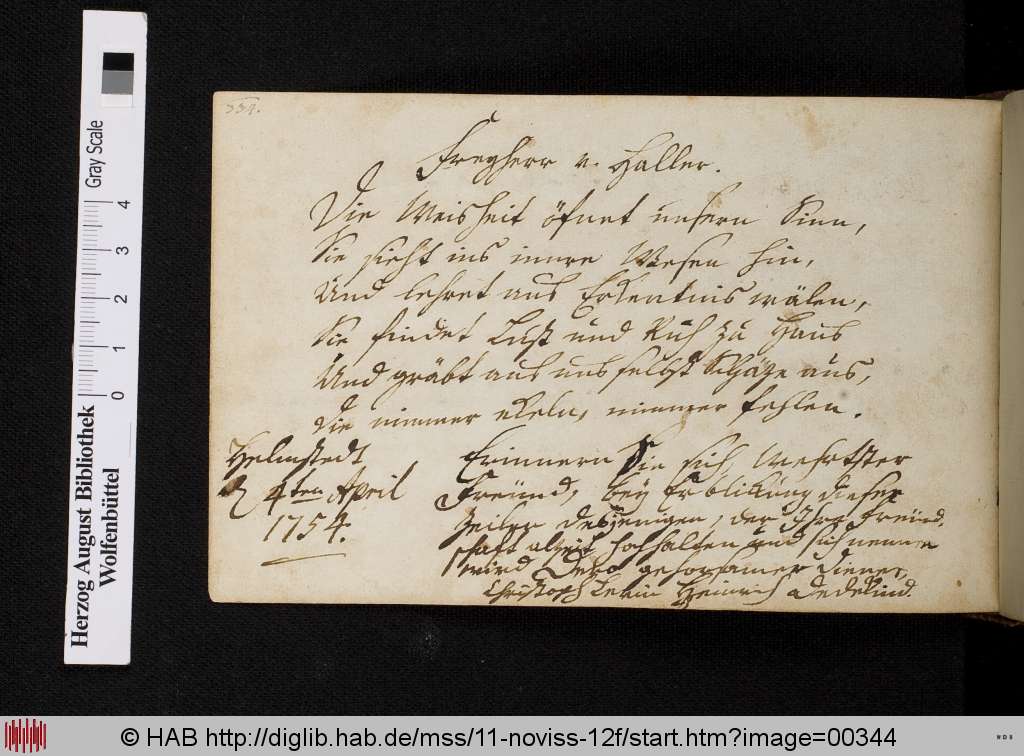 334.
Freyherr v. Haller.
Die Weisheit öfnet unsern Sinn,
Sie sieht ins innre Wesen hin,
Und lehret aus Erkentnis wälen,
Sie findet Lust und Ruh zu Haus
Und gräbt aus uns selbst Schäze aus,
die nimmer ekeln, nimmer fehlen.
Helmstedt
4ten April
1754.
Erinnern Sie sich, Wehrtster
Freünd, bey Erblikung dieser
Zeilen desjenigen, der Ihre Freünd-
schaft alzeit hochhalten und sich nennen
wird Dero gehorsamer Diener,
Christoph Levin Heinrich Dedekind.
Herzog August Bibliothek
Wolfenbüttel
0 1 2 3 4
Gray Scale
© HAB http://diglib.hab.de/mss/11-noviss-12f/start.htm?image=00344